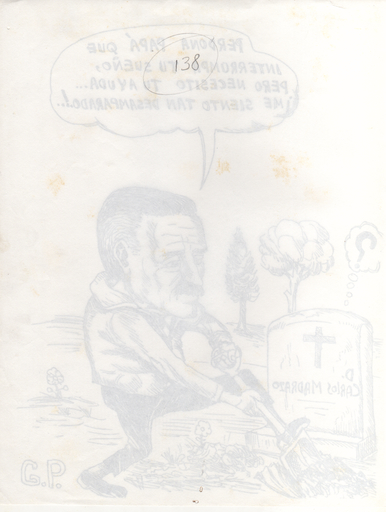 138
PERDONA PAPÁ QUE
INTERRUMPA TU SUEÑO,
PERO NECESITO TU AYUDA...
¡ME SIENTO TAN DESAMPARADO!..
?
D.
CARLOS MADRAZO
G.P.